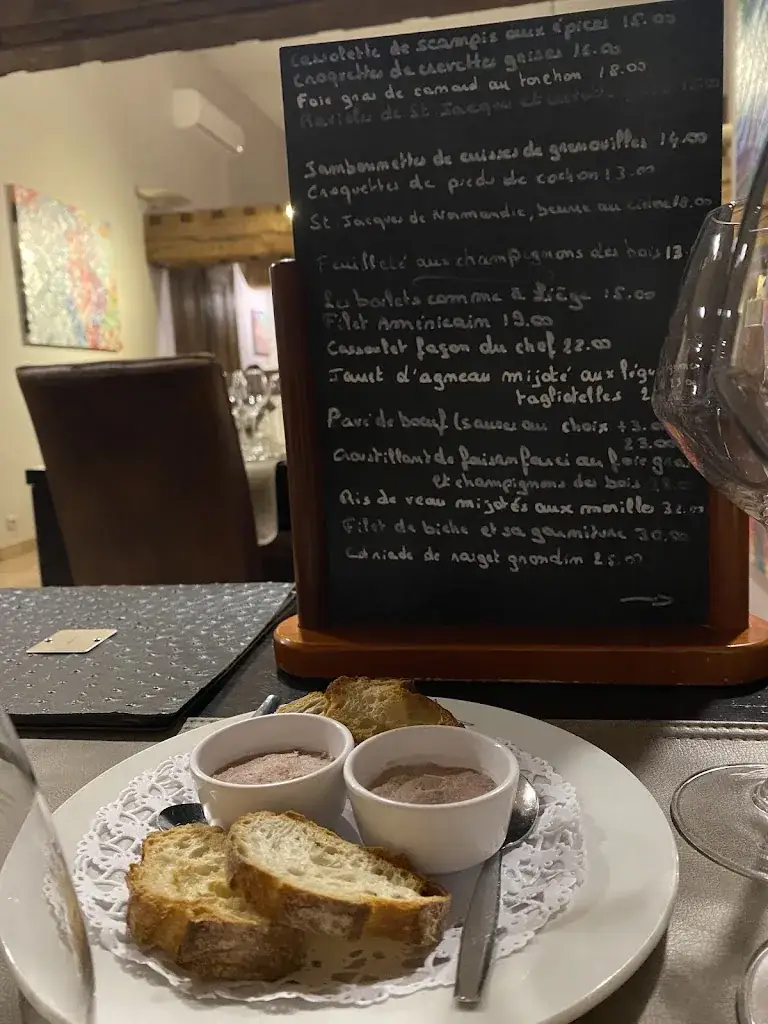 Cassolette de scampis aux épices 18.00
Croquettes de crevettes grises 16.00
Foie gras de canard au torchon 18.00
Ravioles de St Jacques et
Jambonnettes de cuisses de grenouilles 14.00
Croquettes de pieds de cochon 13.00
St Jacques de Normandie, beurre au 18.00
Feuilleté aux champignons des bois 13.
Les boulets comme à Liège 15.00
Filet Américain 19.00
Cassoulet façon du chef 22.00
d'agneau mijoté aux lég
tagliatelles 2
Pavé de boeuf (sauce au choix +3.0
23.00
Croustillant de faisan farci au foie gras
et champignons des bois 28.0
Ris de veau mijotés aux morilles 32.00
Filet de biche et sa garniture 30.00
de rouget grondin 25.00